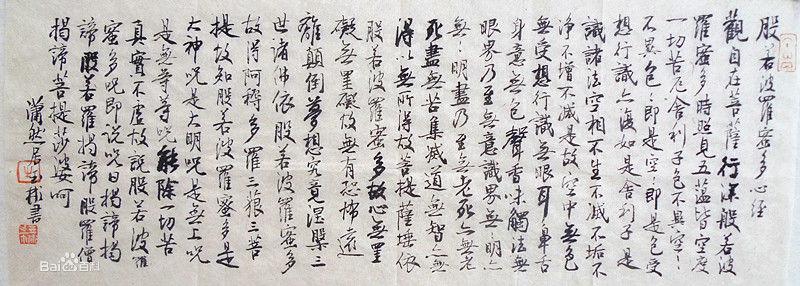 般若波羅蜜多心經
觀自在菩薩行深般若波
羅蜜多時照見五蘊皆空度
一切苦厄舍利子色不異空〻
不異色〻即是空〻即是色受
想行識亦復如是舍利子是
識諸法空相不生不滅不垢不
净不增不滅是故空中無色
無受想行識無眼耳鼻舌
身意無色聲香味觸法無
眼界乃至無意識界無明亦
無〻明盡乃至無老死亦無老
死盡無苦集滅道無智亦無
得以無所得故菩提薩埵依
般若波羅蜜多故心無罣
礙無罣礙故無有恐怖遠
離顛倒夢想究竟涅槃三
世諸佛依般若波羅蜜多
故得阿耨多羅三藐三菩
提故知般若波羅蜜多是
大神咒是大明咒是無上咒
是無等等咒能除一切苦
真實不虛故說般若波羅
蜜多咒即說咒曰揭諦揭
諦般若羅揭諦般羅僧
揭諦菩提莎婆呵
然居士書
Baidu百科